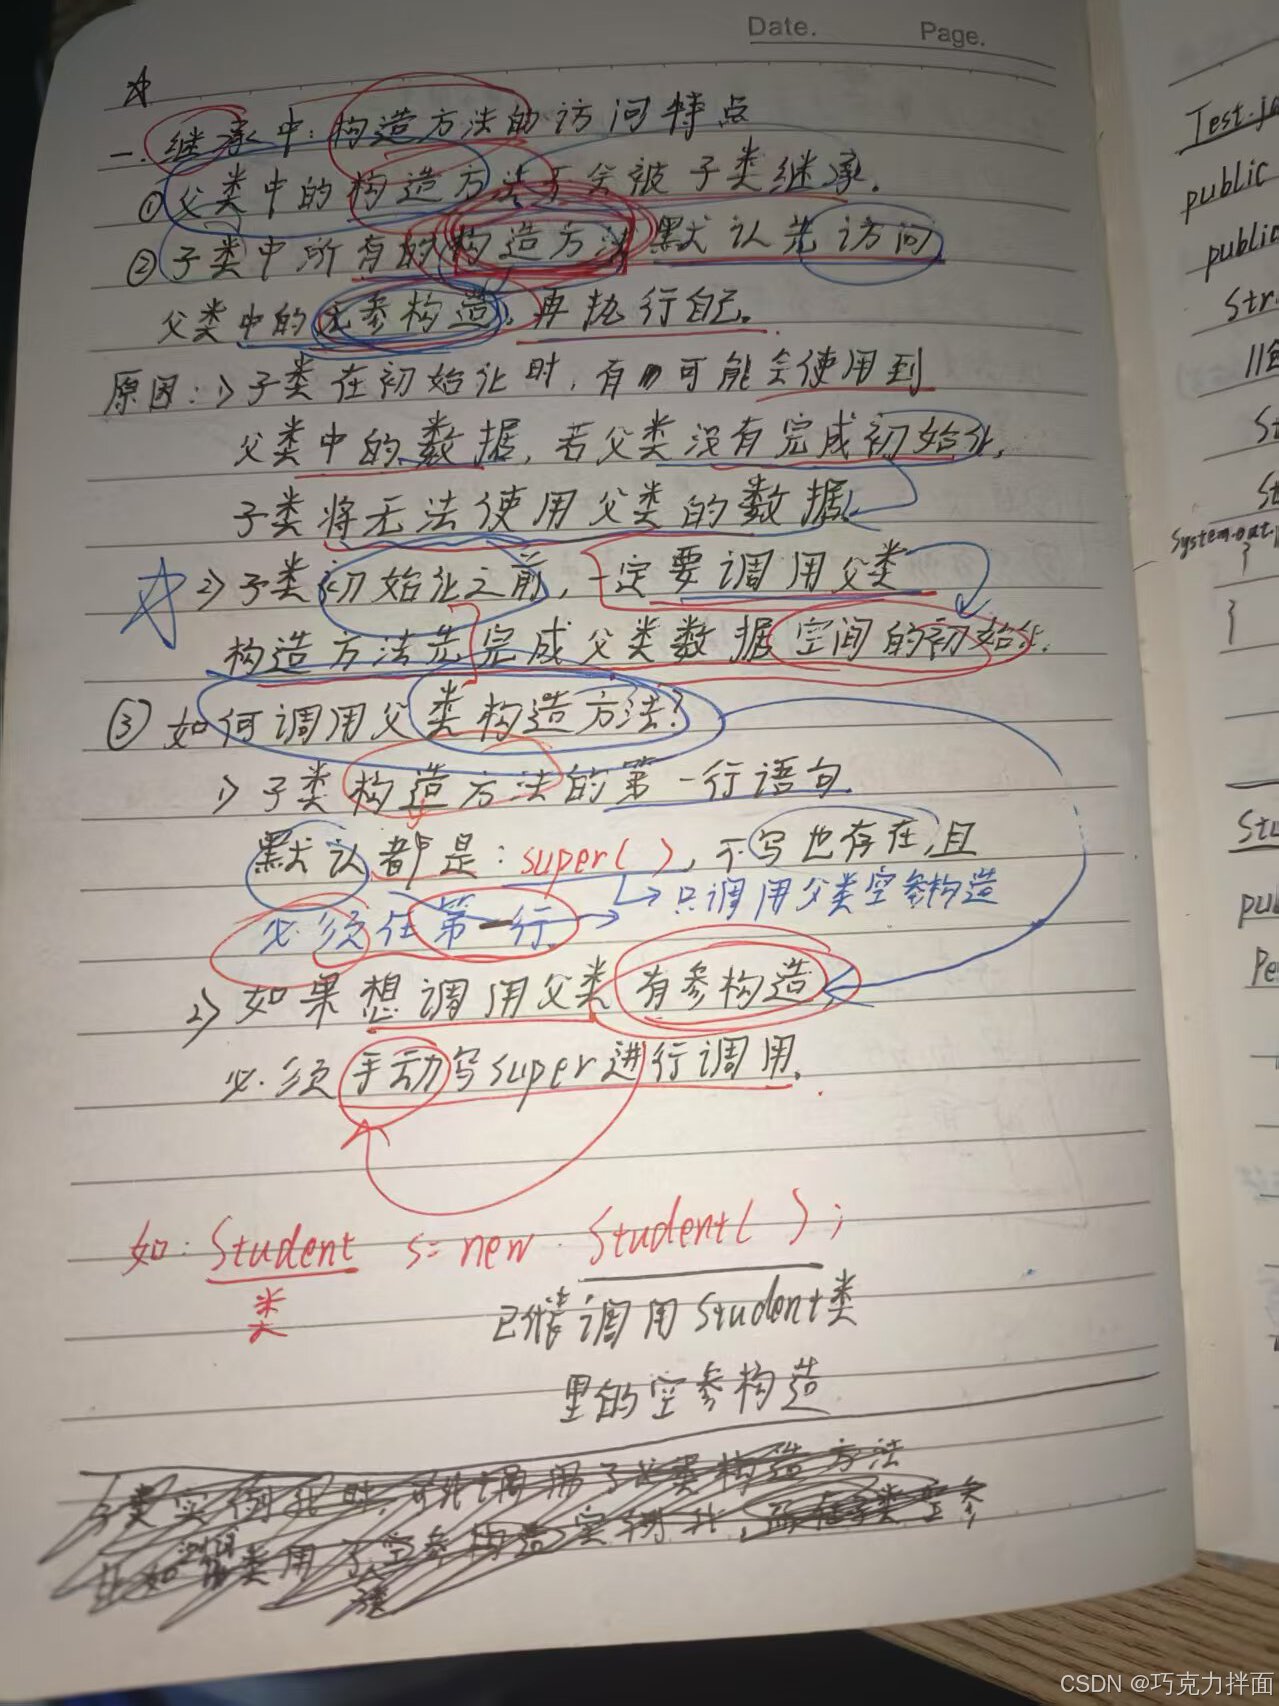 Date. Page.
一.继承中:构造方法的访问特点
①父类中的构造方法不会被子类继承.
②子类中所有的构造方法默认先访问
父类中的无参构造,再执行自己.
原因:1>子类在初始化时,有可能会使用到
父类中的数据,若父类没有完成初始化,
子类将无法使用父类的数据.
2>子类初始化之前,一定要调用父类
构造方法先完成父类数据空间的初始化.
③如何调用父类构造方法?
1>子类构造方法的第一行语句
默认都是:super(),不写也存在,且
→只调用父类空参构造
必须在第一行.
2>如果想调用父类有参构造,
必须手动写super进行调用.
如:Student s=new Student();
类
调用Student类
里的空参构造
Test.ja
public
public
Str
St
St
System.out.
}
}
Stu
pub
Pe
CSDN @巧克力拌面